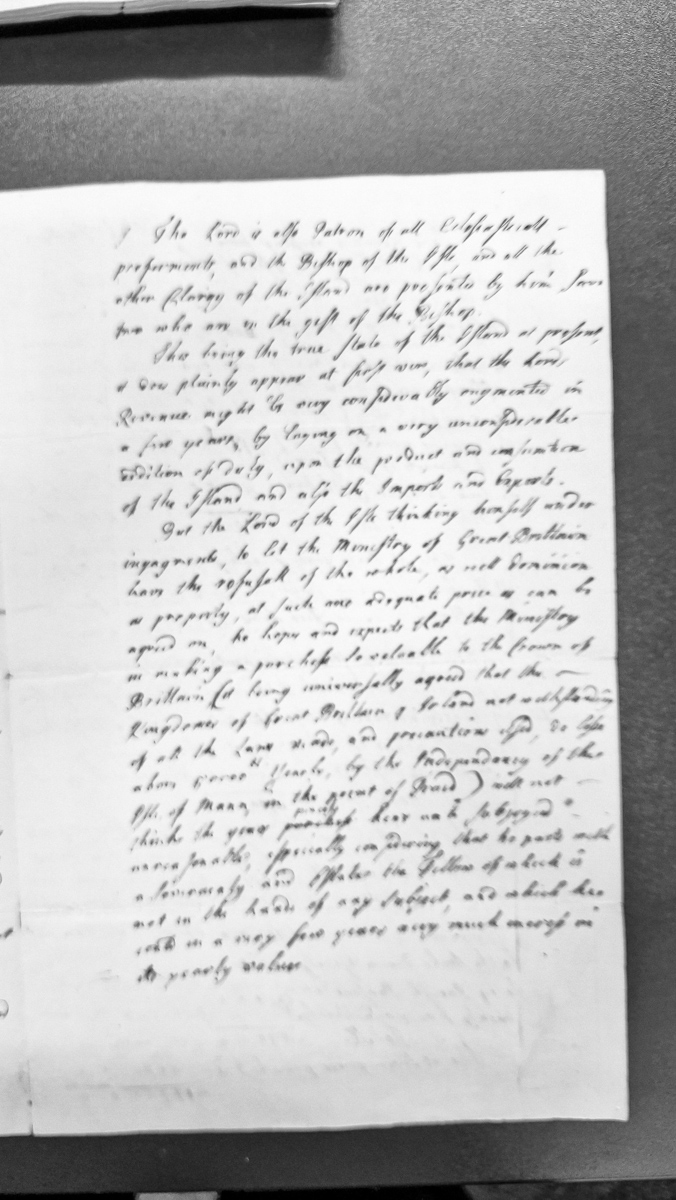 The Lord is also Patron of all Eclesiasticall
preferments, and the Bishop of the Isle and all the
other Clargy of the Island are presented by him, save
two who are in the gift of the Bishop.
This being the true State of the Island at present,
it does plainly appear at first view, that the Lords
Revenue might be very considerably augmented in
a few years, by laying on a very unconsiderable
adition of duty, upon the product and consumtion
of the Island and also the Imports and Exports.
But the Lord of the Isle thinking himself under
ingagments, to let the Ministry of Great Brittain
have the refusall of the whole, as well dominion
as property, at such ane adequate price as can be
agreed on, he hopes and expects that the Ministry
in making a purchess so valuable to the Crown of
Brittain (it being universally agreed that the
Kingdomes of Great Brittain & Ireland not withstanding
of all the Laws made, and precautions used, do lose
above Yearly, by the Independancy of the
Isle of Mann, in the point of Trade) will not
think the years hear unto Subjoyned
unreasonable; especially considering that he parts with
a Soveraenty and Estates the Fellow of which is
not in the hands of any Subject, and which he
could in a very few years very much incress in
its yearly value